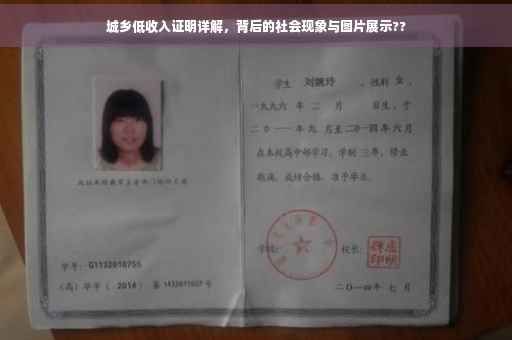 城乡低收入证明详解，背后的社会现象与图片展示??
学生 刘婉玲 ，性别 女 ，
一九九六 年 二 月 日生，于
二〇一一年九 月至二〇一四年六月
在本校高中部学习，学制 三年，修业
期满，成绩合格，准予毕业。
学校： 校长：
学号： G1132010755
(高) 毕字 ( 2014 ) 第 1432011007 号
二〇一四年 七 月